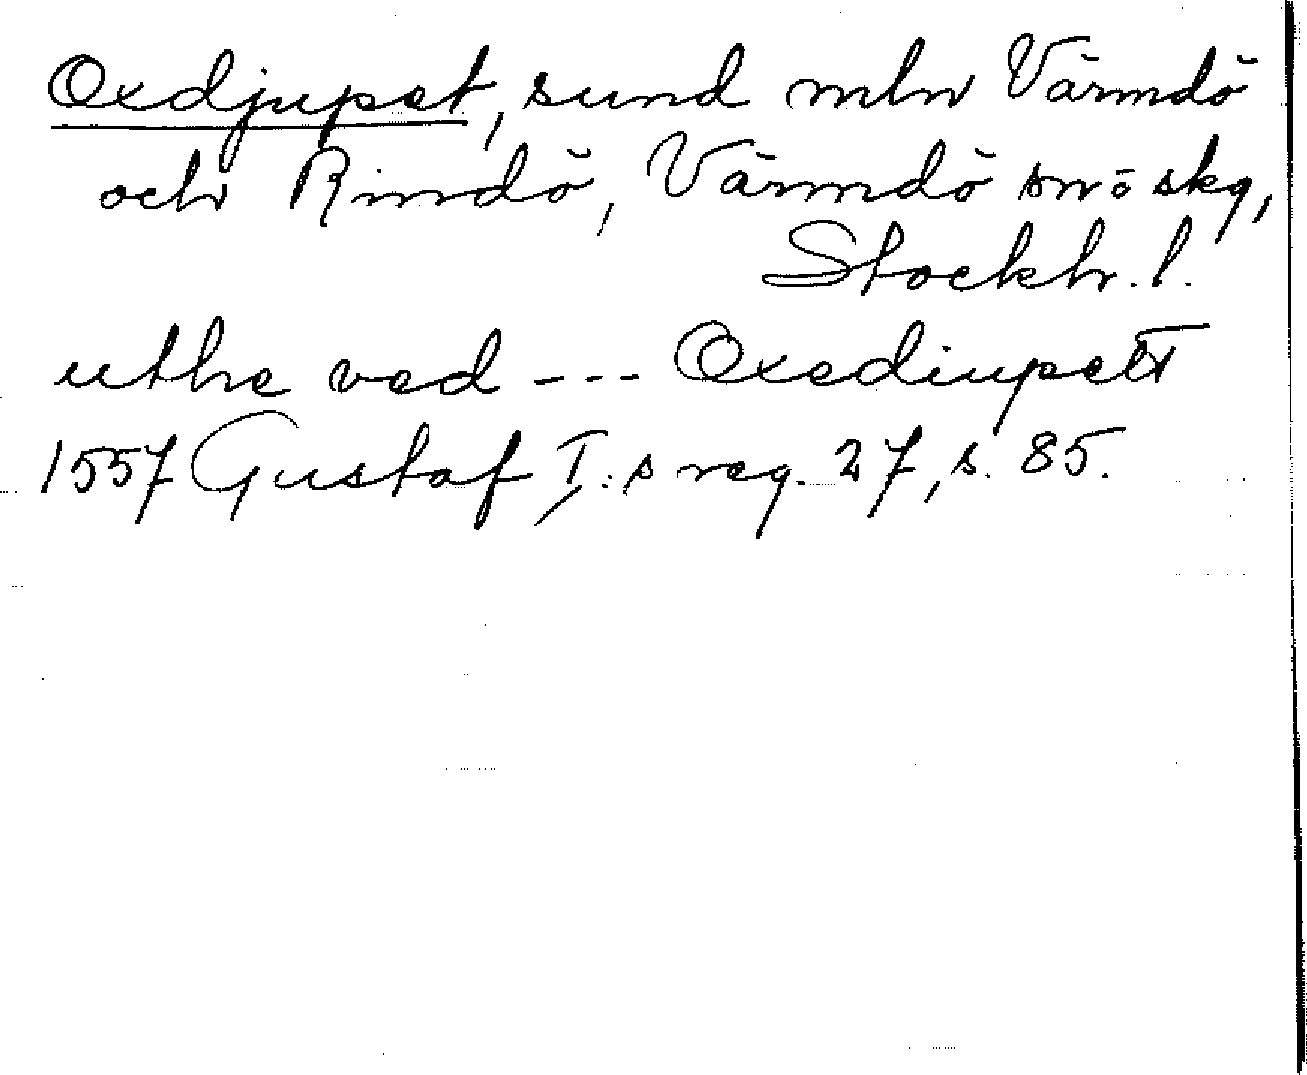 Oxdjupet, sund mln Värmdö
och Rindö, Värmdö sn o skg,
Stockh. l.
uthe ved --- Oxediupett
1557 Gustaf I:s reg. 27, s. 85.